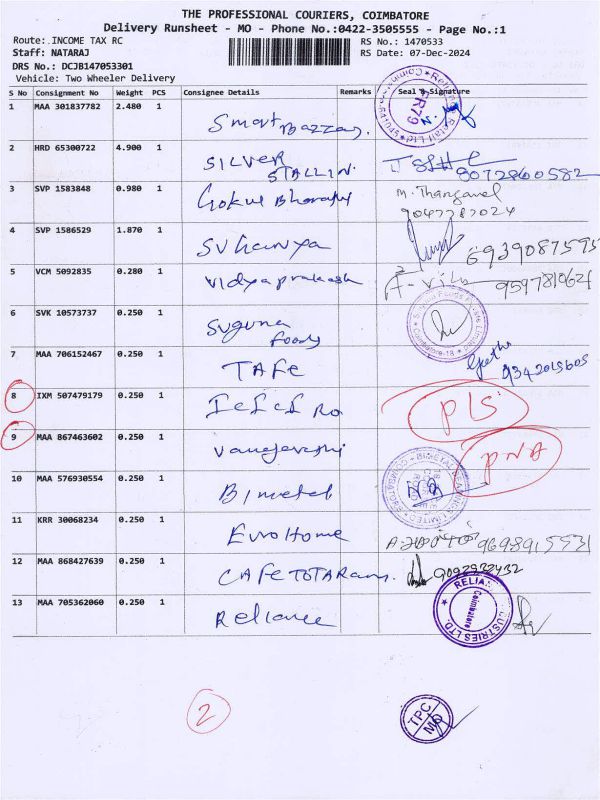 THE PROFESSIONAL COURIERS, COIMBATORE
Delivery Runsheet - MO - Phone No.:0422-3505555 - Page No.:1
Route:.INCOME TAX RC
RS No.: 1470533
Staff: NATARAJ
RS Date: 07-Dec-2024
DRS No.: DCJB147053301
Vehicle: Two Wheeler Delivery
S No Consignment No Weight PCS Consignee Details Remarks Seal & Signature
1 MAA 301837782 2.480 1 Smart Bazzay.
2 HRD 65300722 4.900 1 SILVER STALLIN. 9072860582
3 SVP 1583848 0.980 1 Gokul Bharathi M. Thangavel
4 SVP 1586529 1.870 1 Suhanya 6939087595
5 VCM 5092835 0.280 1 Vidyaprakash 9597810621
6 SVK 10573737 0.250 1 Suguna Foods
7 MAA 706152467 0.250 1 TAFE Geetha 9342015605
8 IXM 507479179 0.250 1 PLS
9 MAA 867463602 0.250 1 PNA
10 MAA 576930554 0.250 1 Bimetal
11 KRR 30068234 0.250 1 EuroHome 9698915531
12 MAA 868427639 0.250 1 CAFETOTARam. 9092932432
13 MAA 705362060 0.250 1 Reliance
RELIANCE INDUSTRIES LTD.
Coimbatore
2
TPC
MO